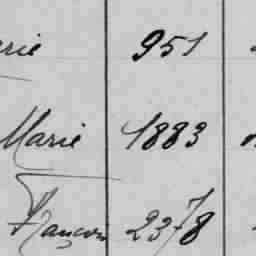 arie 951
Marie 1883
François 2378